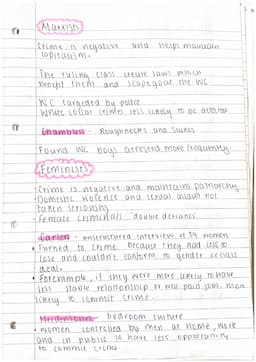 Marxist
Crime is negative and helps maintain
capitalism.
The ruling class create laws which
benefit them and scapegoat the WC
WC targeted by police
White collar crimes less likely to be detected
Chambliss - Roughnecks and Saints
Found WC boys arrested more frequently.
Feminists
• Crime is negative and maintains patriarchy
• Domestic violence and sexual assault not
taken seriously
• Female criminals 'double deviance'
Carlen - unstructured interview of 39 women
• Turned to crime because they had less to
lose and couldn't conform to gender or class
deal.
• For example, if they were more likely to have
less stable relationship or well paid jobs, more
likely to commit crime.
- bedroom culture
• Women controlled by men at home, work
and in public so have less opportunity
to commit crime